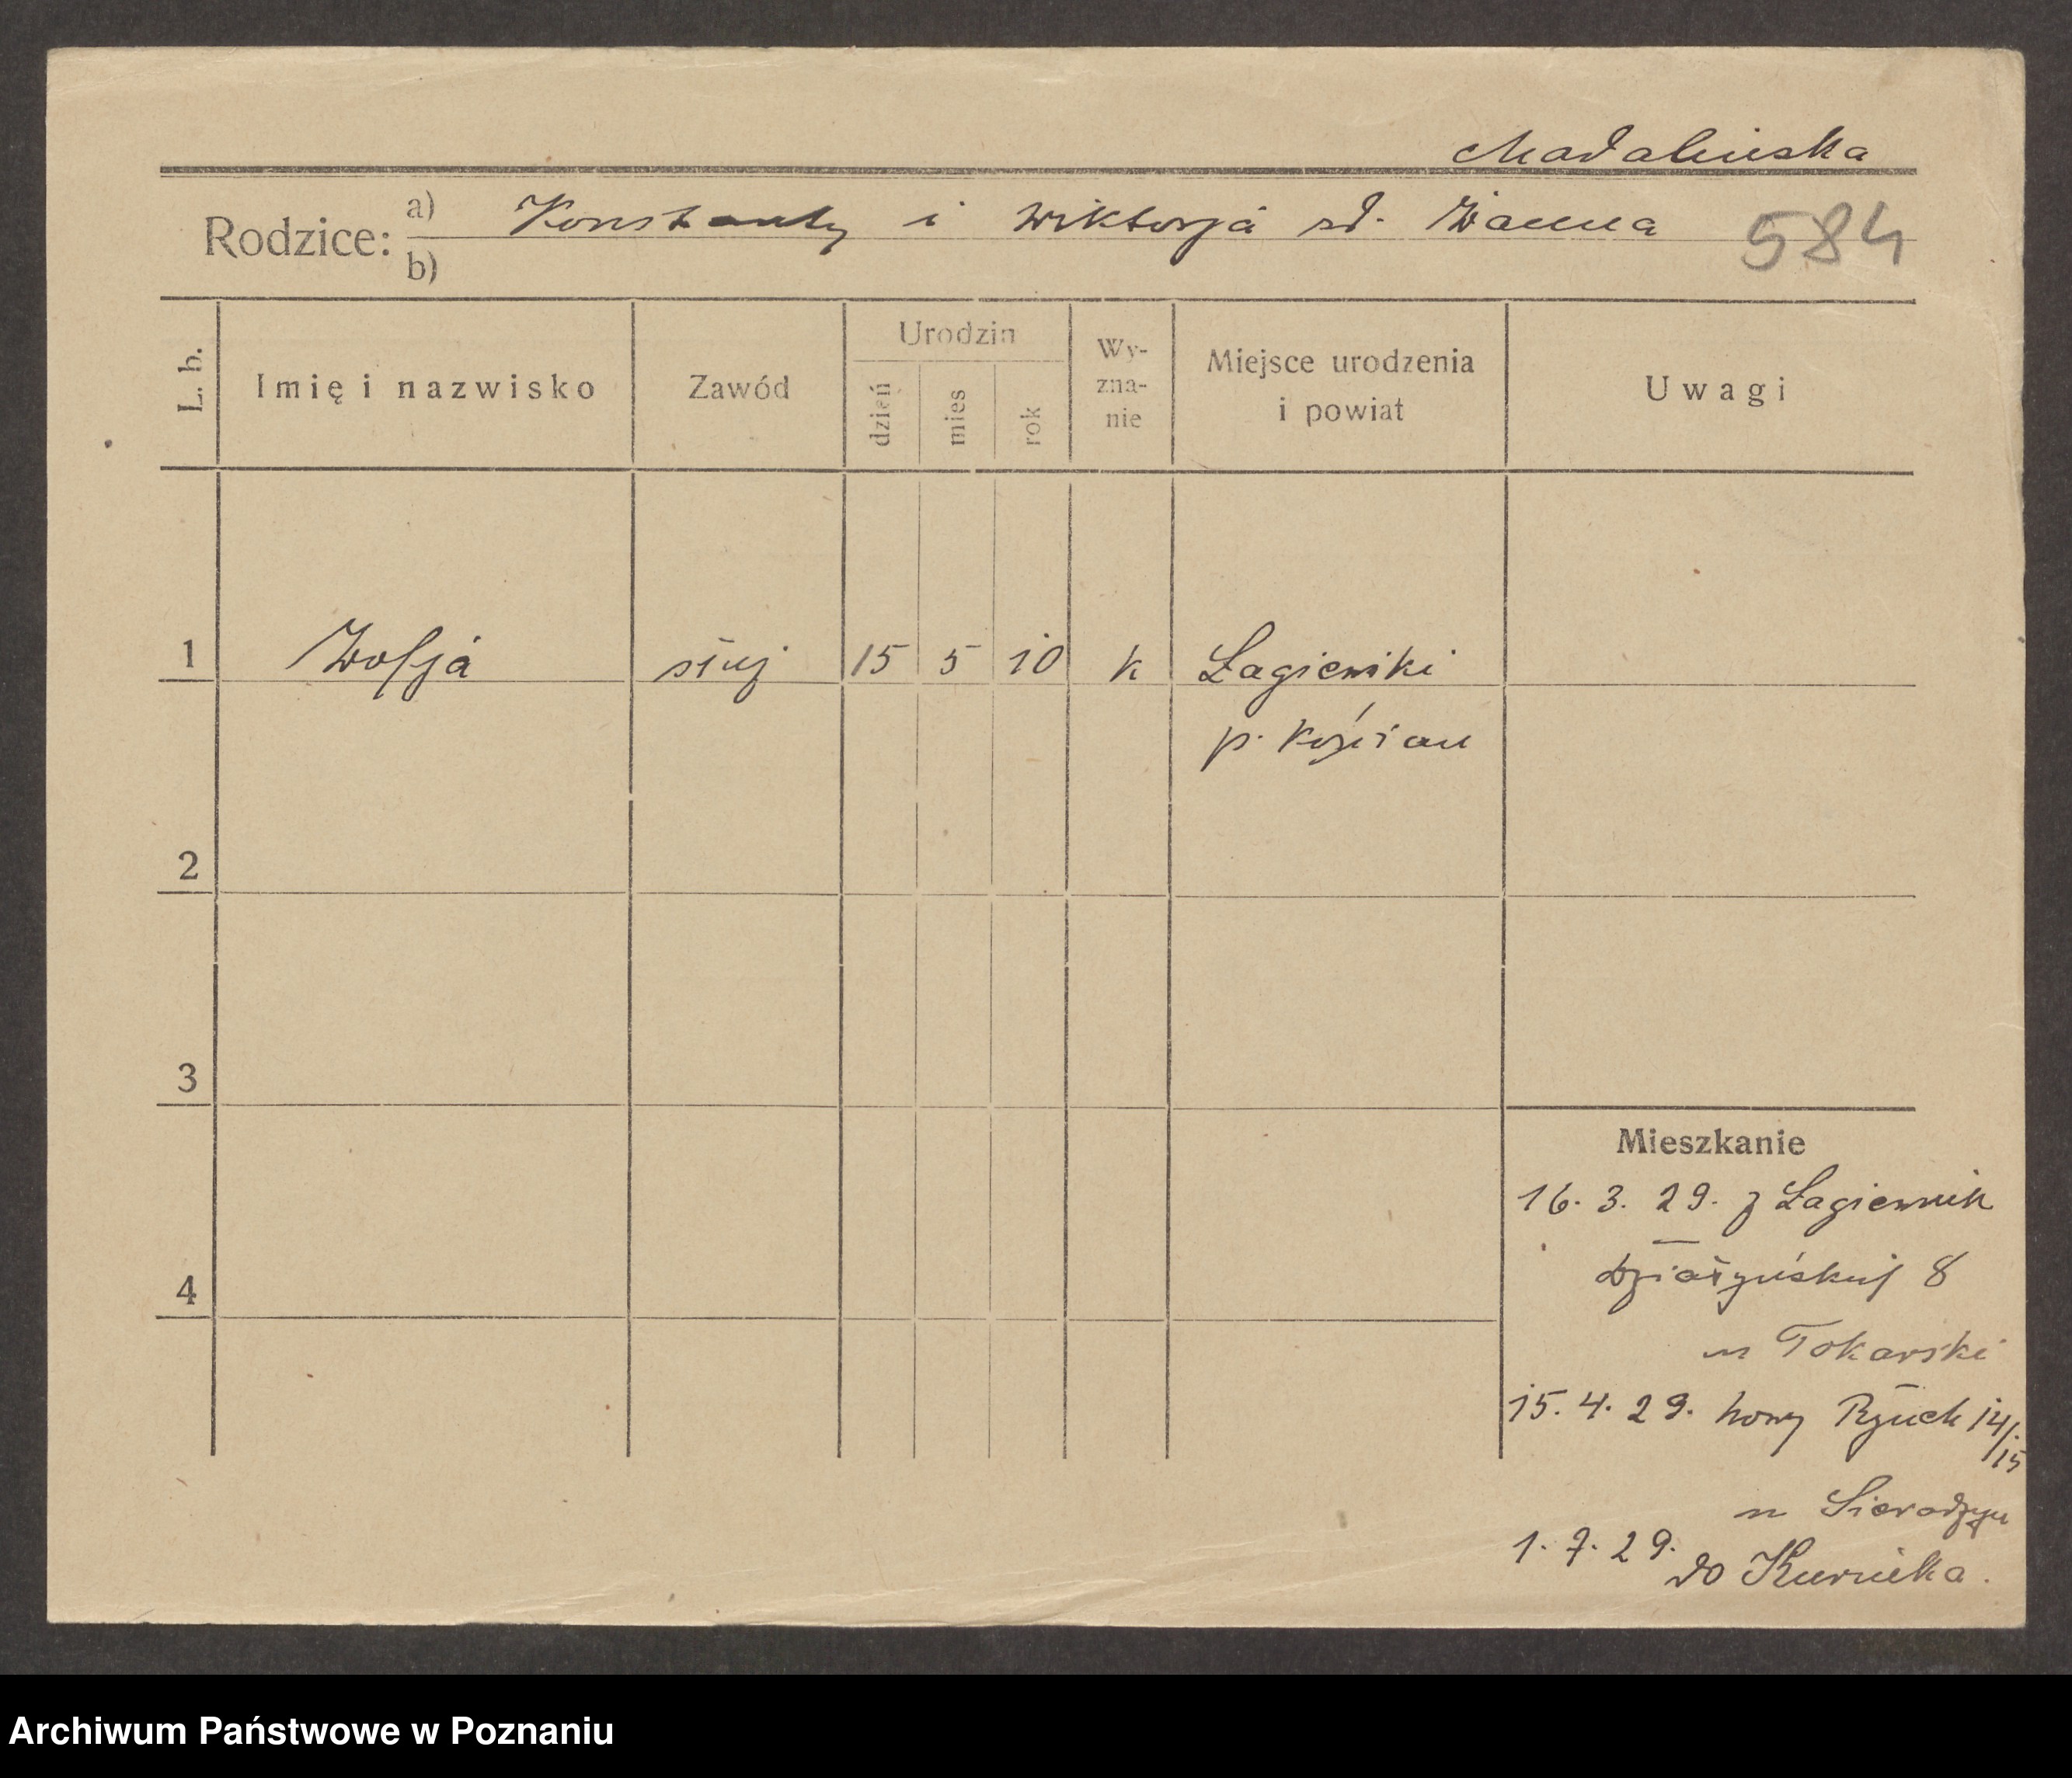 Madalińska
Rodzice: a) Konstanty i Wiktorja
b)
584
L. b. Imię i nazwisko Zawód Urodzin dzień mies rok Wy-zna-nie Miejsce urodzenia i powiat Uwagi
1 Zofja służ 15 5 10 k Łagiewniki
p. Kościan
2
3
4
Mieszkanie
16. 3. 29. z Łagiewnik
Działyńskiej 8
u Tokarski
15. 4. 29. Nowy Rynek 14/15
u
1. 7. 29.
do Kurnika.
Archiwum Państwowe w Poznaniu